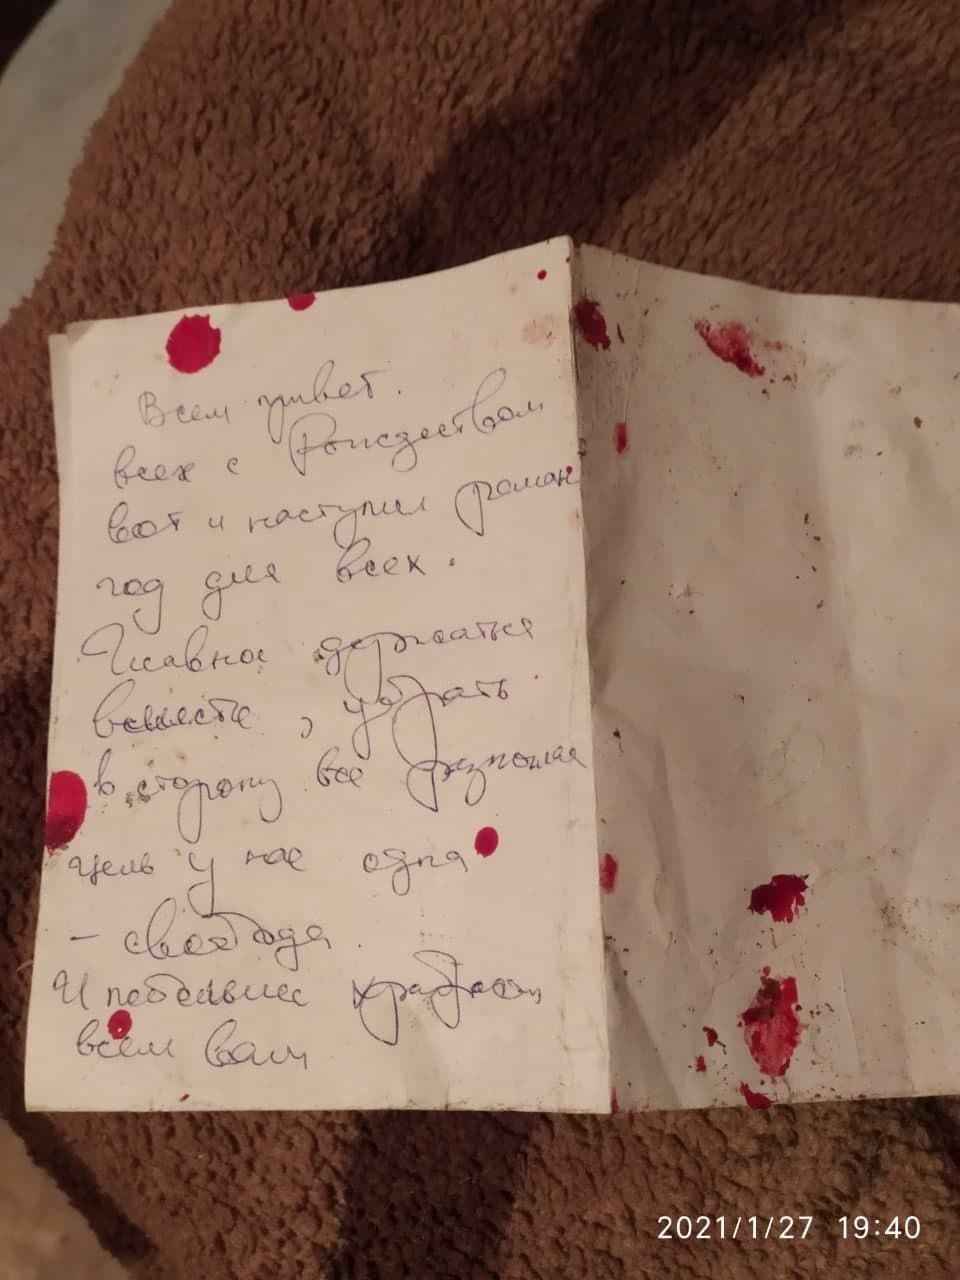 Всем привет.
всех с Рождеством
вот и наступил роман
год для всех.
Главное держаться
вместе, убрать
в сторону все
цель у нас одна
- свобода
И побольше храбрости
всем вам
2021/1/27 19:40